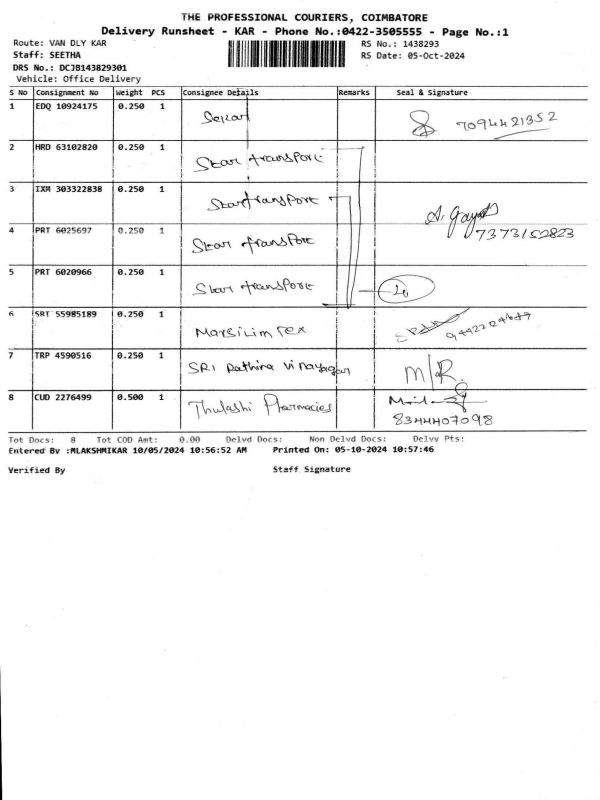 THE PROFESSIONAL COURIERS, COIMBATORE
Delivery Runsheet - KAR - Phone No.:0422-3505555 - Page No.:1
Route: VAN DLY KAR
RS No.: 1438293
Staff: SEETHA
RS Date: 05-Oct-2024
DRS No.: DCJB143829301
Vehicle: Office Delivery
S No Consignment No Weight PCS Consignee Details Remarks Seal & Signature
1 EDQ 10924175 0.250 1 7094421352
2 HRD 63102820 0.250 1 Star transport
3 IXM 303322838 0.250 1 Star transport A. Gayat
7373152823
4 PRT 6025697 0.250 1 Star transport
5 PRT 6020966 0.250 1 Star transport
6 SRT 55985189 0.250 1 Marsilim Tex
7 TRP 4590516 0.250 1 SRI Rathina Vinayagar M/R
8 CUD 2276499 0.500 1 Thulashi Pharmacies
8344407098
Tot Docs: 8 Tot COD Amt: 0.00 Delvd Docs: Non Delvd Docs: Delvv Pts:
Entered By :MLAKSHMIKAR 10/05/2024 10:56:52 AM Printed On: 05-10-2024 10:57:46
Verified By Staff Signature